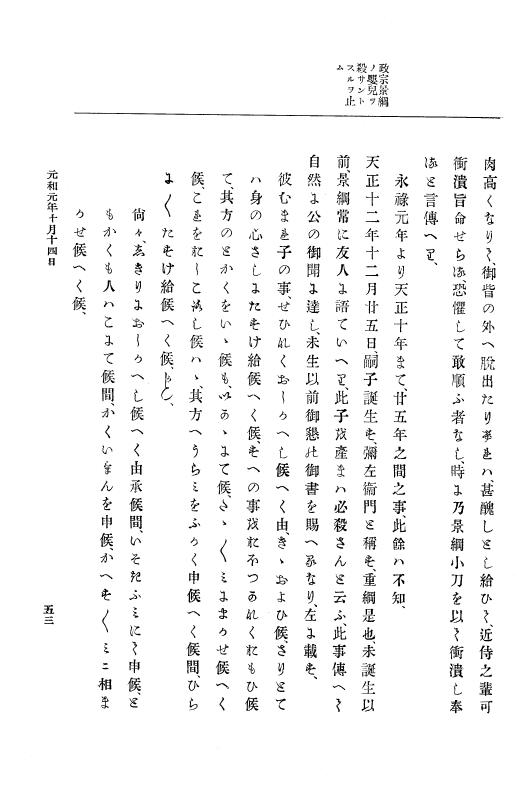 政宗景綱
ノ嬰兒ヲ
殺サント
スルヲ止
ム
肉高くなりて、御眥の外へ脱出たり、本をハ甚醜しとし給ひて、近侍之輩可
衝潰旨命せらる、恐懼して敢順ふ者なし、時に乃景綱小刀を以て衝潰し奉
ると言傳へり、
永祿元年より天正十年まて、廿五年之間之事、此餘ハ不知、
天正十二年十二月廿五日、嗣子誕生を、彌左衞門と稱を、重綱是也、未誕生以
前、景綱常に友人に語ていへり、此子を產まハ必殺さんと云ふ、此事傳へて
自然に公の御聞に達し、未生以前御懇の御書を賜へるなり、左に載を、
彼むまを子の事、せひなくおしうへし候へく由、きゝおよひ候、さりとて
ハ身の心さしにたをけ給候へく候、をへの事をにをつあれくれもひ候
て、其方のとかくをいゝ候も、いのあゝまて候、さゝ〱ミにまうせ候へく
候、こをを たしこ し候ハゝ、其方へうらミをふうく申候へく候間、ひら
に〱たをけ給候へく候、
尙々、ゑきりにおしうへし候へく由承候間、いそたふミにて申候、と
もかくも人ハこまて候間、かくいをんを申候、かへを〱ミニ相ま
うせ候へく候、
元和元年十月十四日
五三